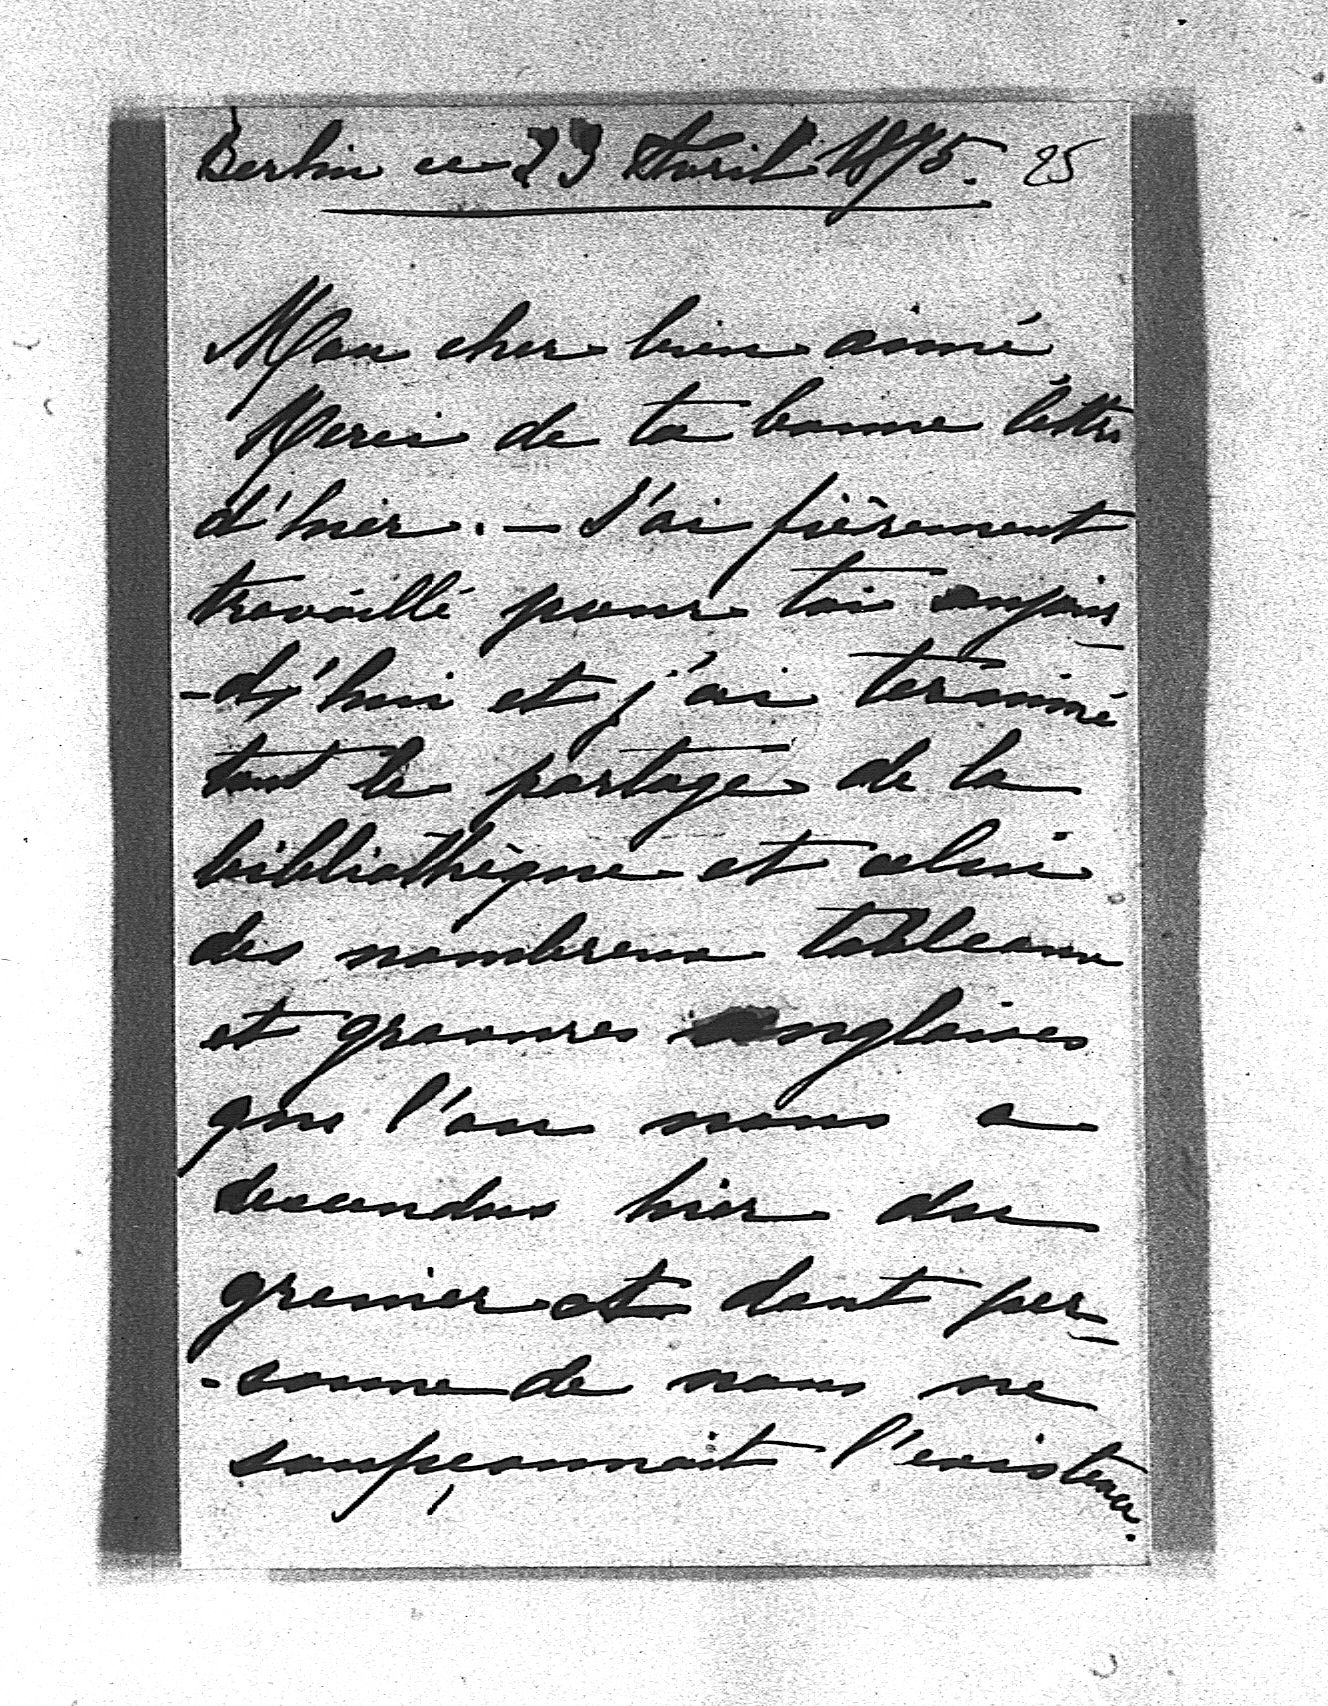 Berlin ce 23 Avril 1875. 25
Mon cher bien aimé
Merci de ta bonne lettre
d'hier. — J'ai fièrement
travaillé pour toi aujour
-d'hui et j'ai terminé
tout le partage de la
bibliothèque et celui
des nombreux tableaux
et gravures anglaises
que l'on nous a
descendus hier du
grenier et dont per-
-sonne de nous ne
soupçonnait l'existence.